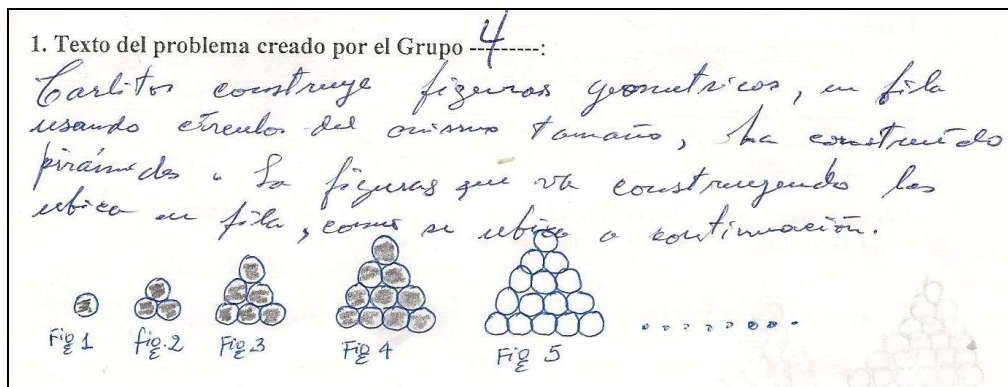 1. Texto del problema creado por el Grupo ---4------:
Carlitos construye figuras geometricas, en fila
usando círculos del mismo tamaño, ha construido
pirámides. La figuras que va construyendo las
ubica en fila, como se ubica a continuación.
Fig 1 fig. 2 Fig 3 Fig 4 Fig 5